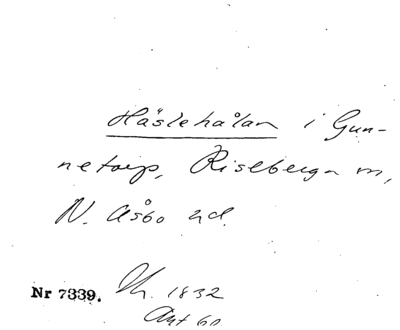 Häslehålan i Gun-
netorp, Riseberga sn,
N. Åsbo hd.
Nr 7339. 1832